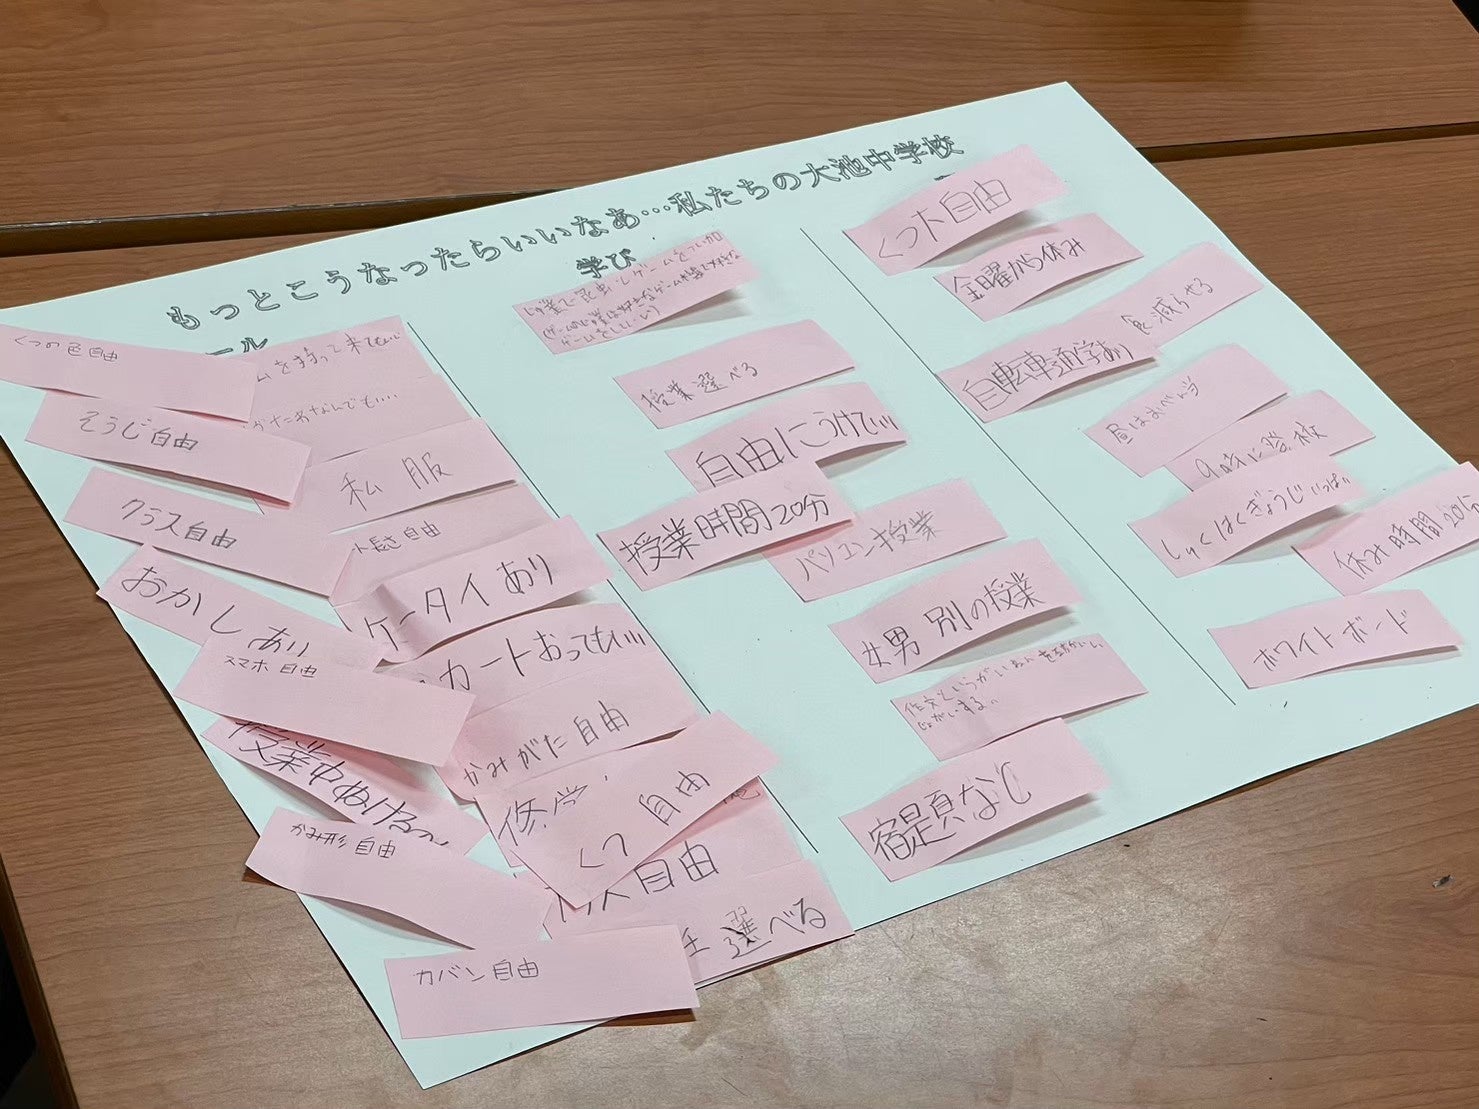 もっとこうなったらいいなあ…私たちの大池中学校
ール
くつの色自由
そうじ自由
クラス自由
おかしあり
スマホ自由
授業中ぬける
かみ形自由
カバン自由
を持って来てい…
なんでも…
私服
自由
ケータイあり
カートおってもいい
かみがた自由
修学
くつ自由
自由
選べる
学び
授業選べる
自由にうけていい
授業時間20分
パソコン授業
女男別の授業
宿題なし
くつ下自由
金曜から休み
減らせる
自転車通学あり
昼はおべん当
9時に登校
しゅくはくぎょうじいっぱい
休み時間20分
ホワイトボード